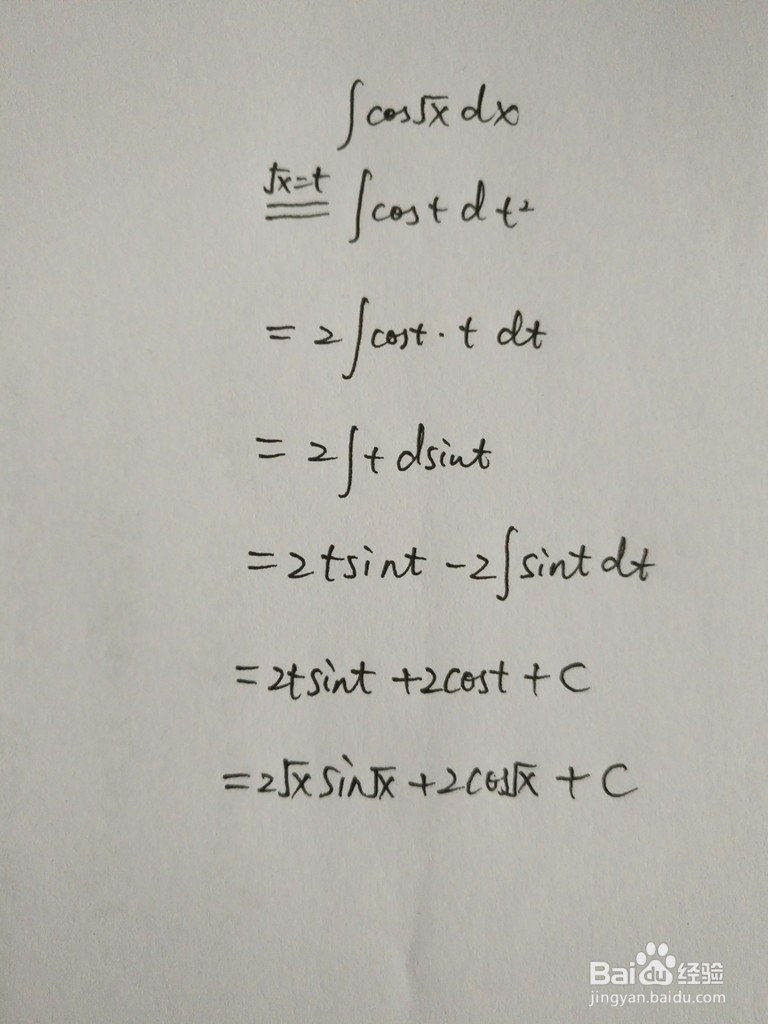 ∫cos√x dx
√x=t
═ ∫cost dt²
= 2∫cost·t dt
= 2∫t dsint
= 2tsint -2∫sint dt
= 2tsint +2cost + C
= 2√x sin√x +2cos√x + C
Bai du 经验
jingyan.baidu.com